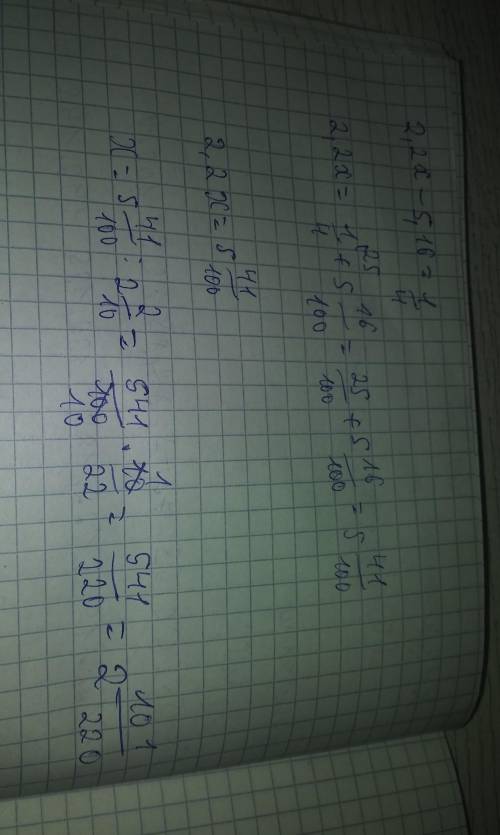 2,2x - 5,16 = 1/4
2,2x = 1/4 ²⁵ + 5 16/100 = 25/100 + 5 16/100 = 5 41/100
2,2x = 5 41/100
x = 5 41/100 : 2 2/10 = 541/100 10 · 10 1/22 = 541/220 = 2 101/220